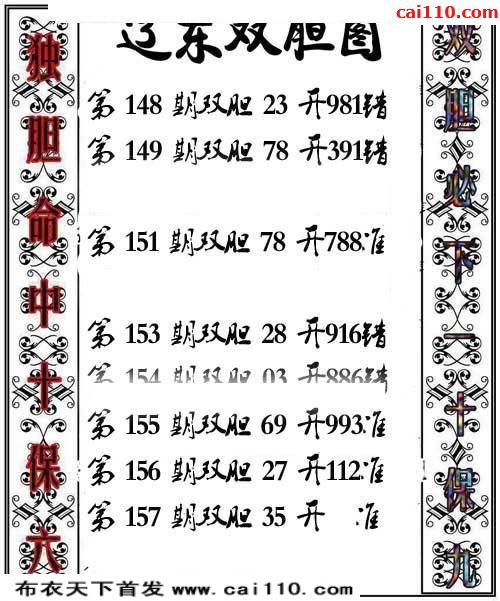 cai110.com
辽东双胆图
独胆命中十保六
双胆必下一十保九
第 148 期双胆 23 开981错
第 149 期双胆 78 开391错
第 151 期双胆 78 开788准
第 153 期双胆 28 开916错
第 154 期双胆 03 开886错
第 155 期双胆 69 开993准
第 156 期双胆 27 开112准
第 157 期双胆 35 开 准
布衣天下首发 www.cai110.com